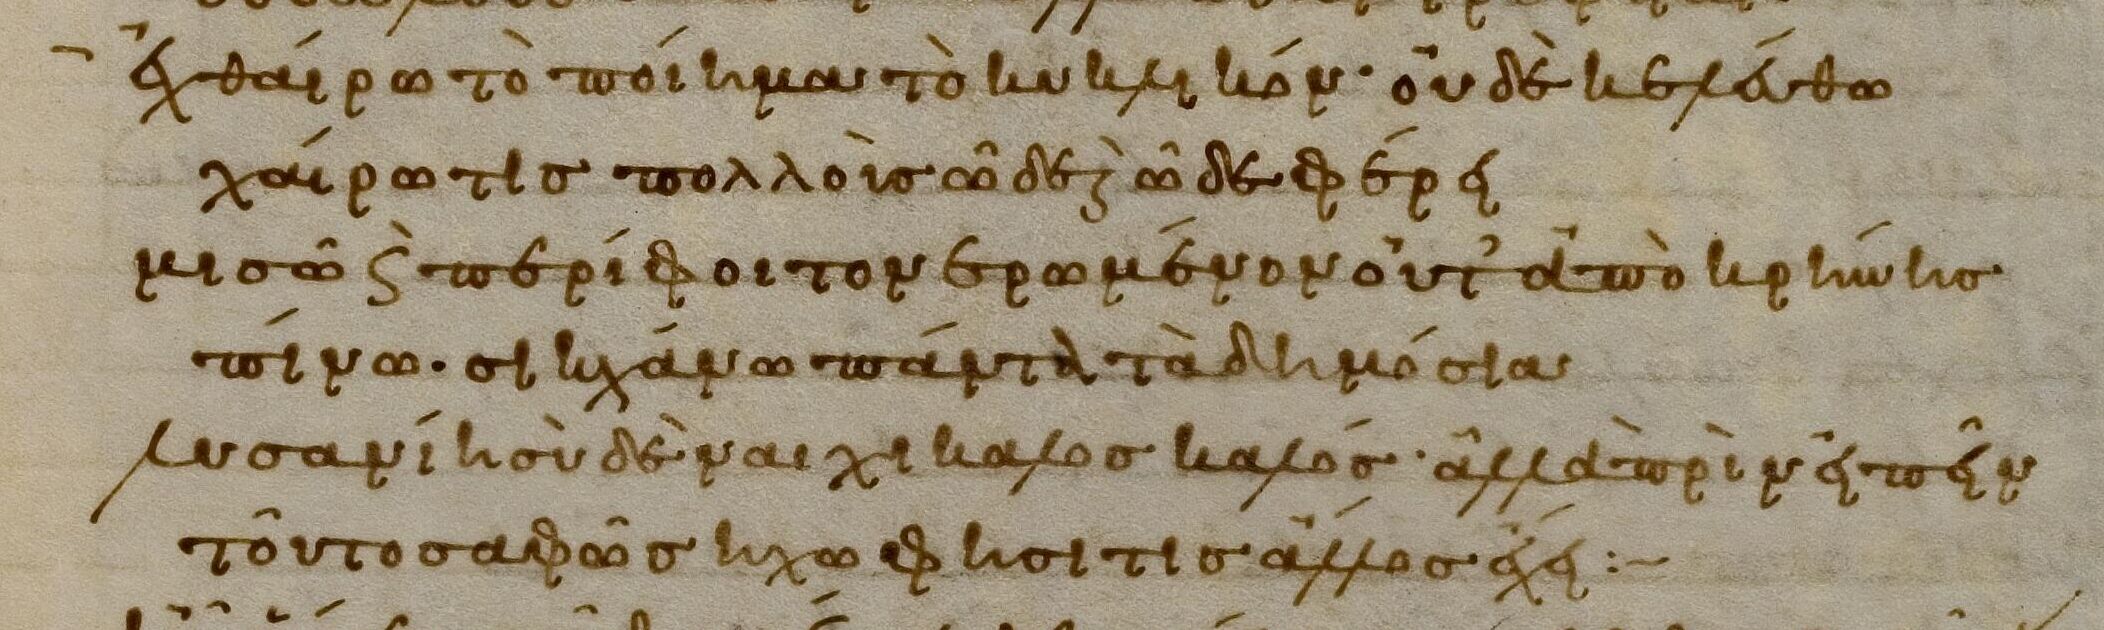 ἐχθαίρω τὸ ποίημα τὸ κυκλικόν· οὐδὲ κελεύθω
χαίρω τίσ πολλοὺσ ὧδε ϗ ὧδε φέρει
μισῶ ϗ περίφοιτον ερωμένον οὔτ' ἀπὸ κρήνησ
πίνω· σικχάνω πάντα τὰ δημόσια
λυσανίη σὺ δὲ ναιχι καλοσ καλόσ· ἀλλὰ πρὶν εἰπεῖν
τοῦτο σαφῶσ ηχω φησι τισ ἄλλοσ ἔχει:~